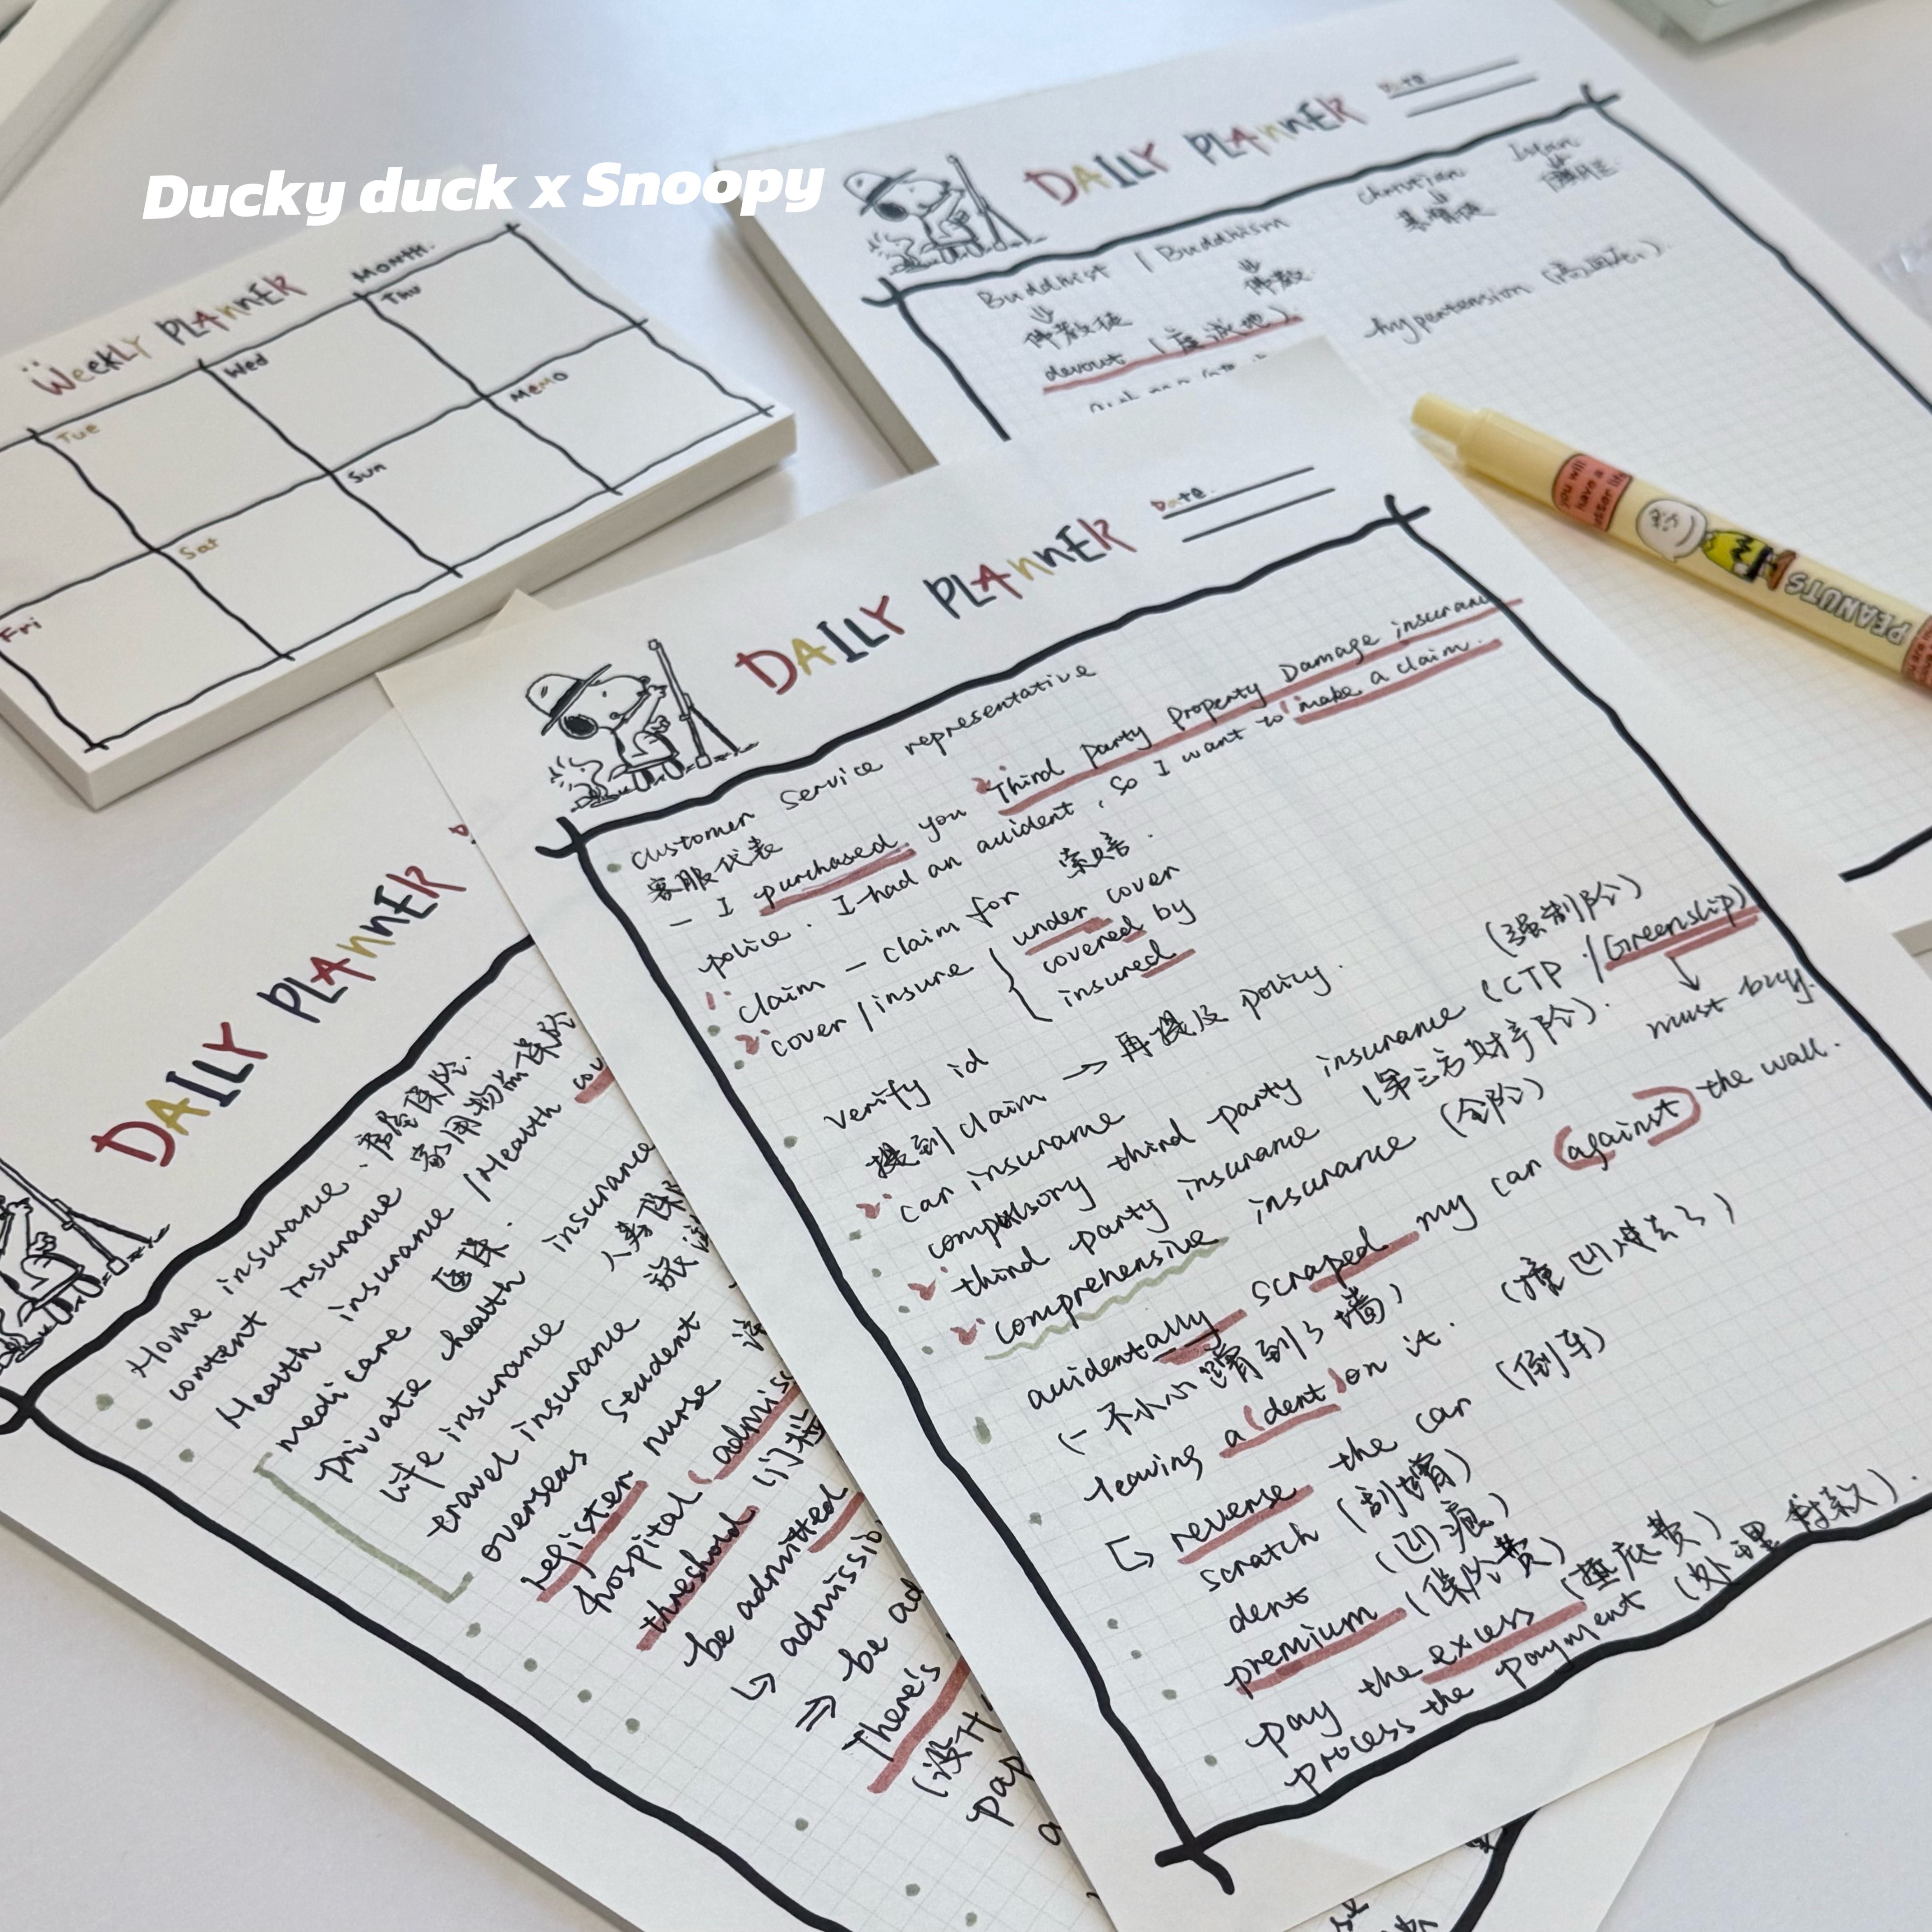 Ducky duck x Snoopy
Weekly PLAnnER
MONTH.
Tue
Wed
Thu
Fri
Sat
Sun
MeMo
DAILY PLAnnER
Date
Buddhist / Buddhism
Christian
佛教徒
佛教
基督徒
devout (虔诚地).
hypertension (高血压).
you will
have a
PEANUTS
DAILY PLAnnER
Date.
customer service representative
客服代表
- I purchased you Third Party Property Damage insurance
police. I had an auident, so I want to make a claim.
claim - claim for 索赔.
cover / insure { under cover
covered by
insured
verify id
提到 claim → 再提及 policy.
car insurance
(强制险)
compulsory third party insurance (CTP / Greenship)
↓
must buy.
third party insurance (第三方财产险).
comprehensive insurance (全险)
auidentally scraped my car (against) the wall.
(- 不小心蹭到了墙)
leaving a (dent) on it. (撞凹进去了)
↳ reverse the car (倒车)
scratch (刮蹭)
dent (凹痕)
premium (保险费)
pay the excess (垫底费)
process the payment (处理付款).
DAILY PLAnnER
Home insurance. 房屋保险.
content insurance 家用物品保险
Health insurance / Health
medicare 医保.
private health insurance
life insurance 人寿保
travel insurance 旅
overseas student
register nurse
hospital (admiss
threshold 门槛
be admitted
↳ admissio
⇒ be ad
There's
(没什
pap